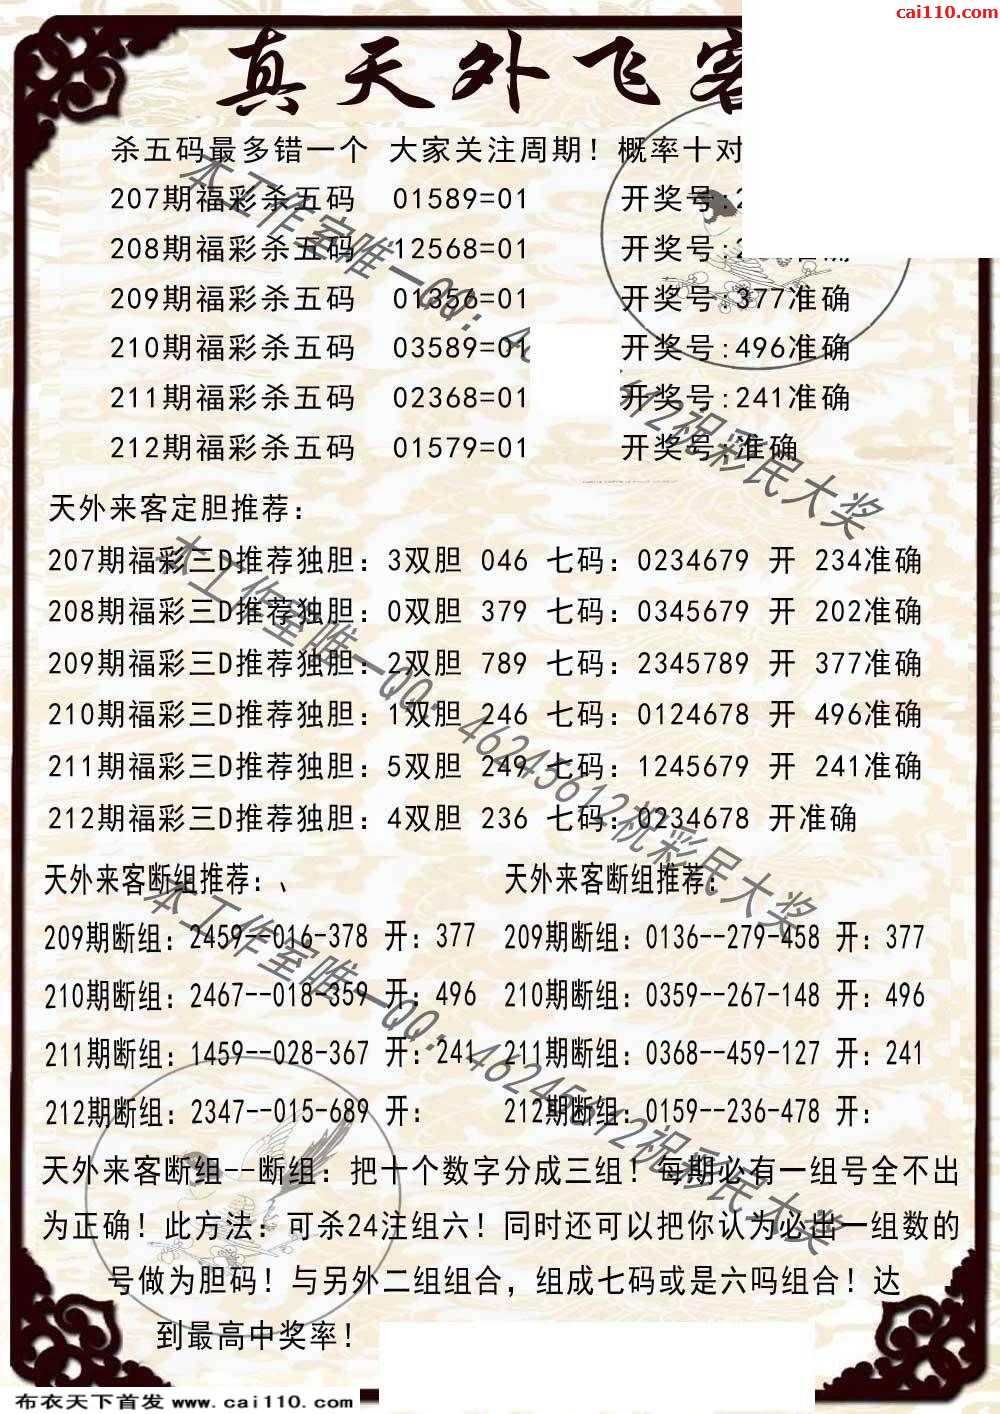 cai110.com
真天外飞客
杀五码最多错一个 大家关注周期！概率十对
207期福彩杀五码 01589=01 开奖号:2
208期福彩杀五码 12568=01 开奖号:2
209期福彩杀五码 01356=01 开奖号:377准确
210期福彩杀五码 03589=01 开奖号:496准确
211期福彩杀五码 02368=01 开奖号:241准确
212期福彩杀五码 01579=01 开奖号:准确
天外来客定胆推荐：
207期福彩三D推荐独胆：3双胆 046 七码：0234679 开 234准确
208期福彩三D推荐独胆：0双胆 379 七码：0345679 开 202准确
209期福彩三D推荐独胆：2双胆 789 七码：2345789 开 377准确
210期福彩三D推荐独胆：1双胆 246 七码：0124678 开 496准确
211期福彩三D推荐独胆：5双胆 249 七码：1245679 开 241准确
212期福彩三D推荐独胆：4双胆 236 七码：0234678 开准确
天外来客断组推荐：、 天外来客断组推荐：
209期断组：2459--016-378 开：377 209期断组：0136--279-458 开：377
210期断组：2467--018-359 开：496 210期断组：0359--267-148 开：496
211期断组：1459--028-367 开：241 211期断组：0368--459-127 开：241
212期断组：2347--015-689 开： 212期断组：0159--236-478 开：
天外来客断组--断组：把十个数字分成三组！每期必有一组号全不出
为正确！此方法：可杀24注组六！同时还可以把你认为必出一组数的
号做为胆码！与另外二组组合，组成七码或是六吗组合！达
到最高中奖率！
本工作室唯一QQ：46245612祝彩民大奖
本工作室唯一QQ：46245612祝彩民大奖
布衣天下首发 www.cai110.com